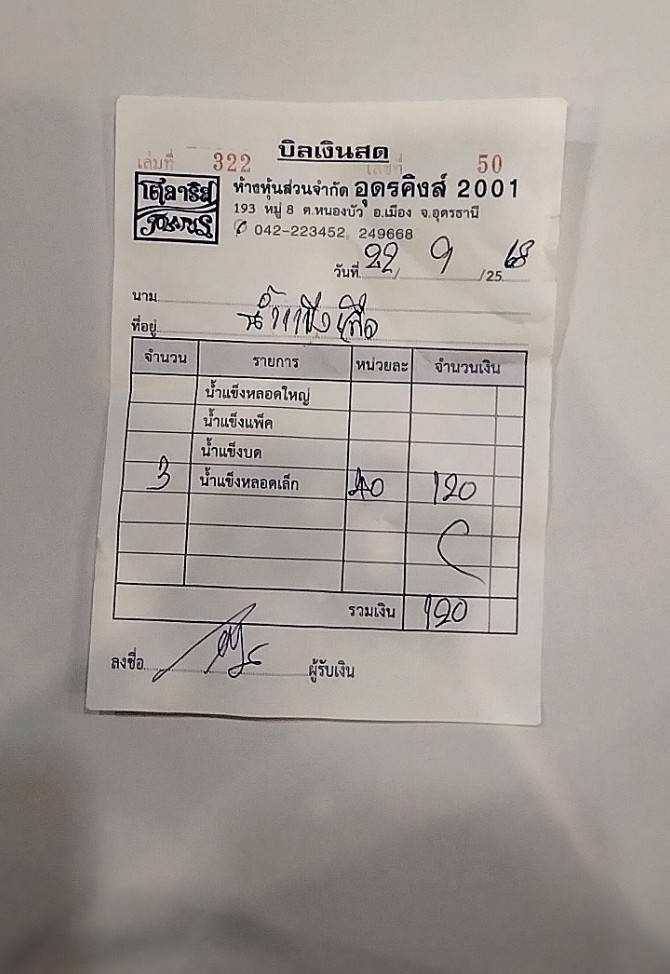 บิลเงินสด
เล่มที่ 322 เลขที่ 50
ห้างหุ้นส่วนจำกัด อุดรคิงส์ 2001
193 หมู่ 8 ต.หนองบัว อ.เมือง จ.อุดรธานี
042-223452, 249668
วันที่ 22 / 9 /25 68
นาม
ที่อยู่
จำนวน รายการ หน่วยละ จำนวนเงิน
น้ำแข็งหลอดใหญ่
น้ำแข็งแพ็ค
น้ำแข็งบด
3 น้ำแข็งหลอดเล็ก 40 120
รวมเงิน 120
ลงชื่อ ผู้รับเงิน